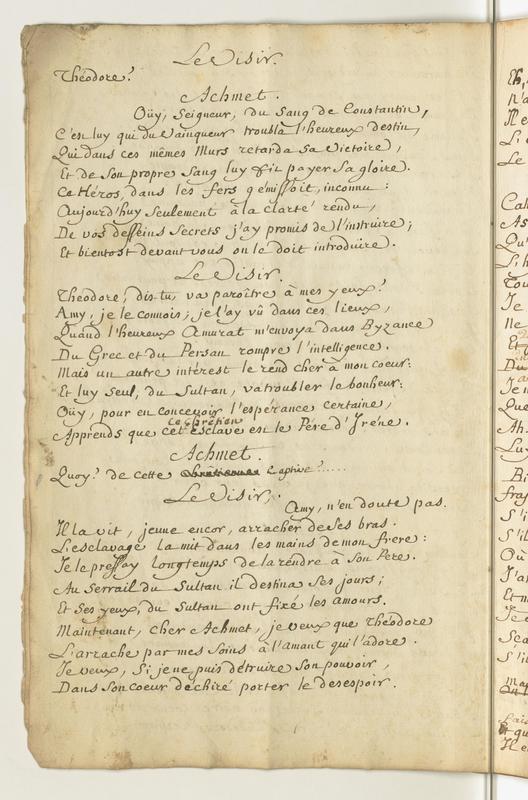 Le Visir.
Théodore?
Achmet.
Oüy, Seigneur, du Sang de Constantin,
C'est luy qui du Vainqueur troubla l'heureux destin,
Qui dans ces mêmes Murs retarda sa Victoire,
Et de son propre sang luy fit payer sa gloire.
Ce Héros, dans les fers gémissoit, inconnu:
Aujourd'huy seulement à la clarté rendu,
De vos desseins secrets j'ay promis de l'instruire;
Et bientost devant vous on le doit introdüire.
Le Visir.
Théodore, dis-tu, va paroître à mes yeux?
Amy, je le connois; je l'ay vû dans ces lieux,
Quand l'heureux Amurat m'envoya dans Byzance
Du Grec et du Persan rompre l'intelligence.
Mais un autre intérest le rend cher à mon coeur:
Et luy seul, du Sultan, va troubler le bonheur:
Oüy, pour en concevoir l'espérance certaine,
ce Chrétien
Apprends que cet esclave est le Pére d'Iréne.
Achmet.
Quoy? de cette Chrétienne Captive?.....
Le Visir.
Amy, n'en doute pas.
Il la vit, jeune encor, arracher de ses bras.
L'esclavage la mit dans les mains de mon frere:
Je le pressay longtemps de la rendre à son Pere.
Au Serrail du Sultan il destina ses jours;
Et ses yeux, du Sultan ont fixé les amours.
Maintenant, cher Achmet, je veux que Théodore
L'arrache par mes soins à l'amant qui l'adore.
Je veux, si je ne puis détruire son pouvoir,
Dans son coeur déchiré porter le desespoir.